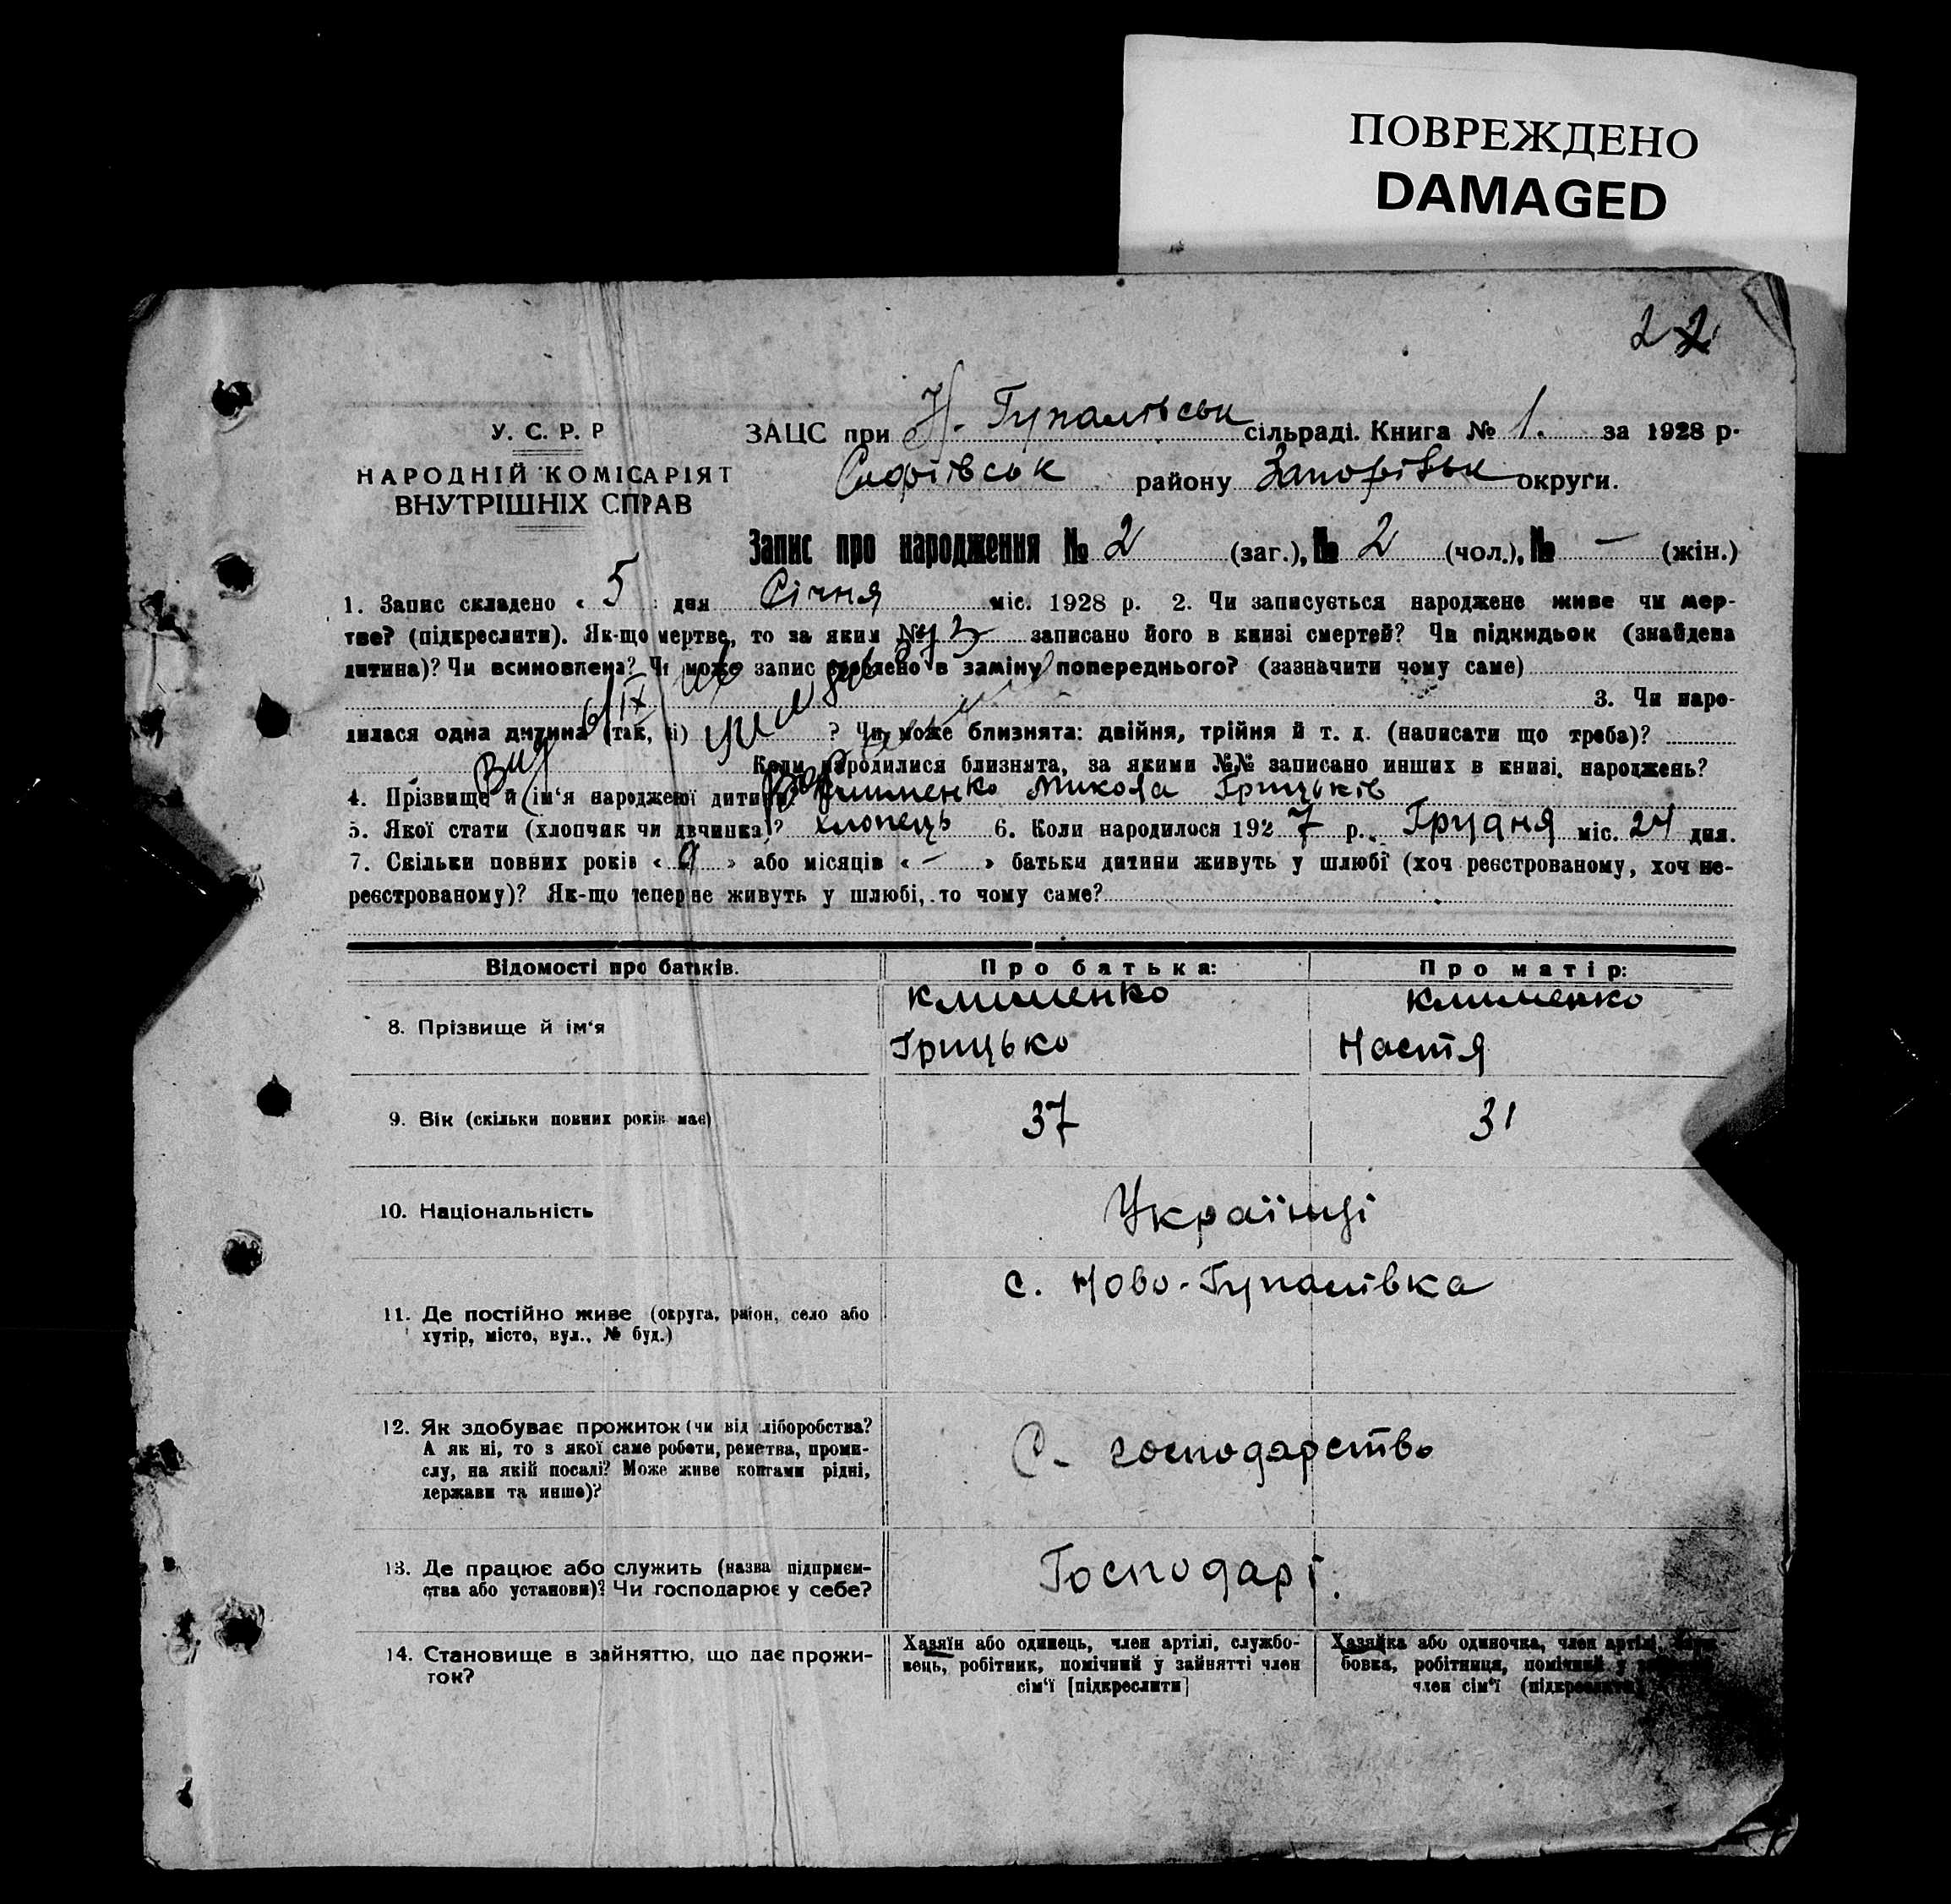 ПОВРЕЖДЕНО
DAMAGED
22
У. С. Р. Р
НАРОДНІЙ КОМІСАРІЯТ
ВНУТРІШНІХ СПРАВ
ЗАЦС при Н. Гупалівськ сільраді. Книга № 1. за 1928 р.
Софіївськ району Запорізьк округи.
Запис про народження № 2 (заг.), № 2 (чол.), № — (жін.)
1. Запис складено « 5 » дня Січня міс. 1928 р. 2. Чи записується народжене живе чи мер-
тве? (підкреслити). Як-що мертве, то за яким № записано його в книзі смертей? Чи підкидьок (знайдена
дитина)? Чи всиновлена? Чи може запис зроблено в заміну попереднього? (зазначити чому саме)
3. Чи наро-
дилася одна дитина (так, ні) ? Чи може близнята: двійня, трійня й т. д. (написати що треба)?
Коли народилися близнята, за якими №№ записано инших в книзі народжень?
4. Прізвище й ім'я народженої дитини? Клименко Микола Грицьків
5. Якої статі (хлопчик чи дівчинка)? хлопець 6. Коли народилося 1927 р. Грудня міс. 24 дня.
7. Скільки повних років « » або місяців « – » батьки дитини живуть у шлюбі (хоч реєстрованому, хоч не-
реєстрованому)? Як-що тепер не живуть у шлюбі, то чому саме?
Відомості про батьків. Про батька: Про матір:
8. Прізвище й ім'я Клименко Грицько Клименко Настя
9. Вік (скільки повних років має) 37 31
10. Національність Українці
11. Де постійно живе (округа, район, село або
хутір, місто, вул., № буд.) с. Ново-Гупалівка
12. Як здобуває прожиток (чи від хліборобства?
А як ні, то з якої саме роботи, ремества, проми-
слу, на якій посаді? Може живе коштами рідні,
держави та инше)? С. господарство
13. Де працює або служить (назва підприєм-
ства або установи)? Чи господарює у себе? Господарі.
14. Становище в зайняттю, що дає прожи-
ток?
Хазяїн або одинець, член артілі, службо-
вець, робітник, помічний у зайнятті член
сім'ї [підкреслити]
Хазяйка або одиночка, член артілі, служ-
бовка, робітниця, помічний у
член сім'ї (підкреслити)